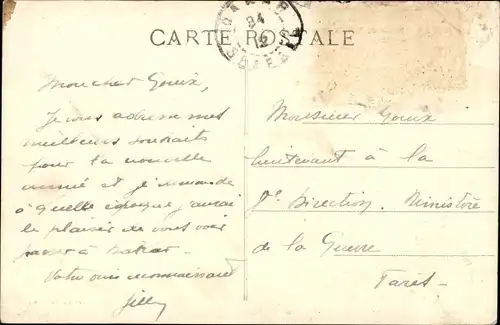 CARTE POSTALE
DAKAR
Mon cher Goux,
Je vous adresse mes
meilleurs souhaits
pour la nouvelle
année et je demande
à quelle époque j'aurai
le plaisir de vous voir
passer à Dakar.
Votre ami reconnaissant
Monsieur Goux
lieutenant à la
Direction. Ministère
de la Guerre
Paris-